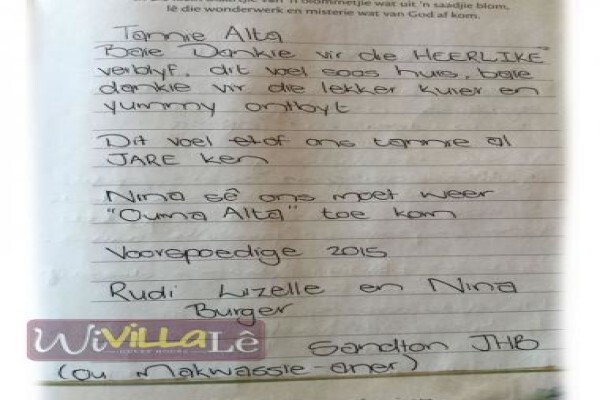 lê die wonderwerk en misterie wat van God af kom.
Tannie Alta
Baie Dankie vir die HEERLIKE
verblyf, dit voel soos huis, baie
dankie vir die lekker kuier en
yummy ontbyt
Dit voel etof ons tannie al
JARE ken
Nina sê ons moet weer
"Ouma Alta" toe kom
Voorspoedige 2015
Rudi Lizelle en Nina
Burger
WiVILLALê
GUEST HOUSE
Sandton JHB
(ou Makwassie-aner)